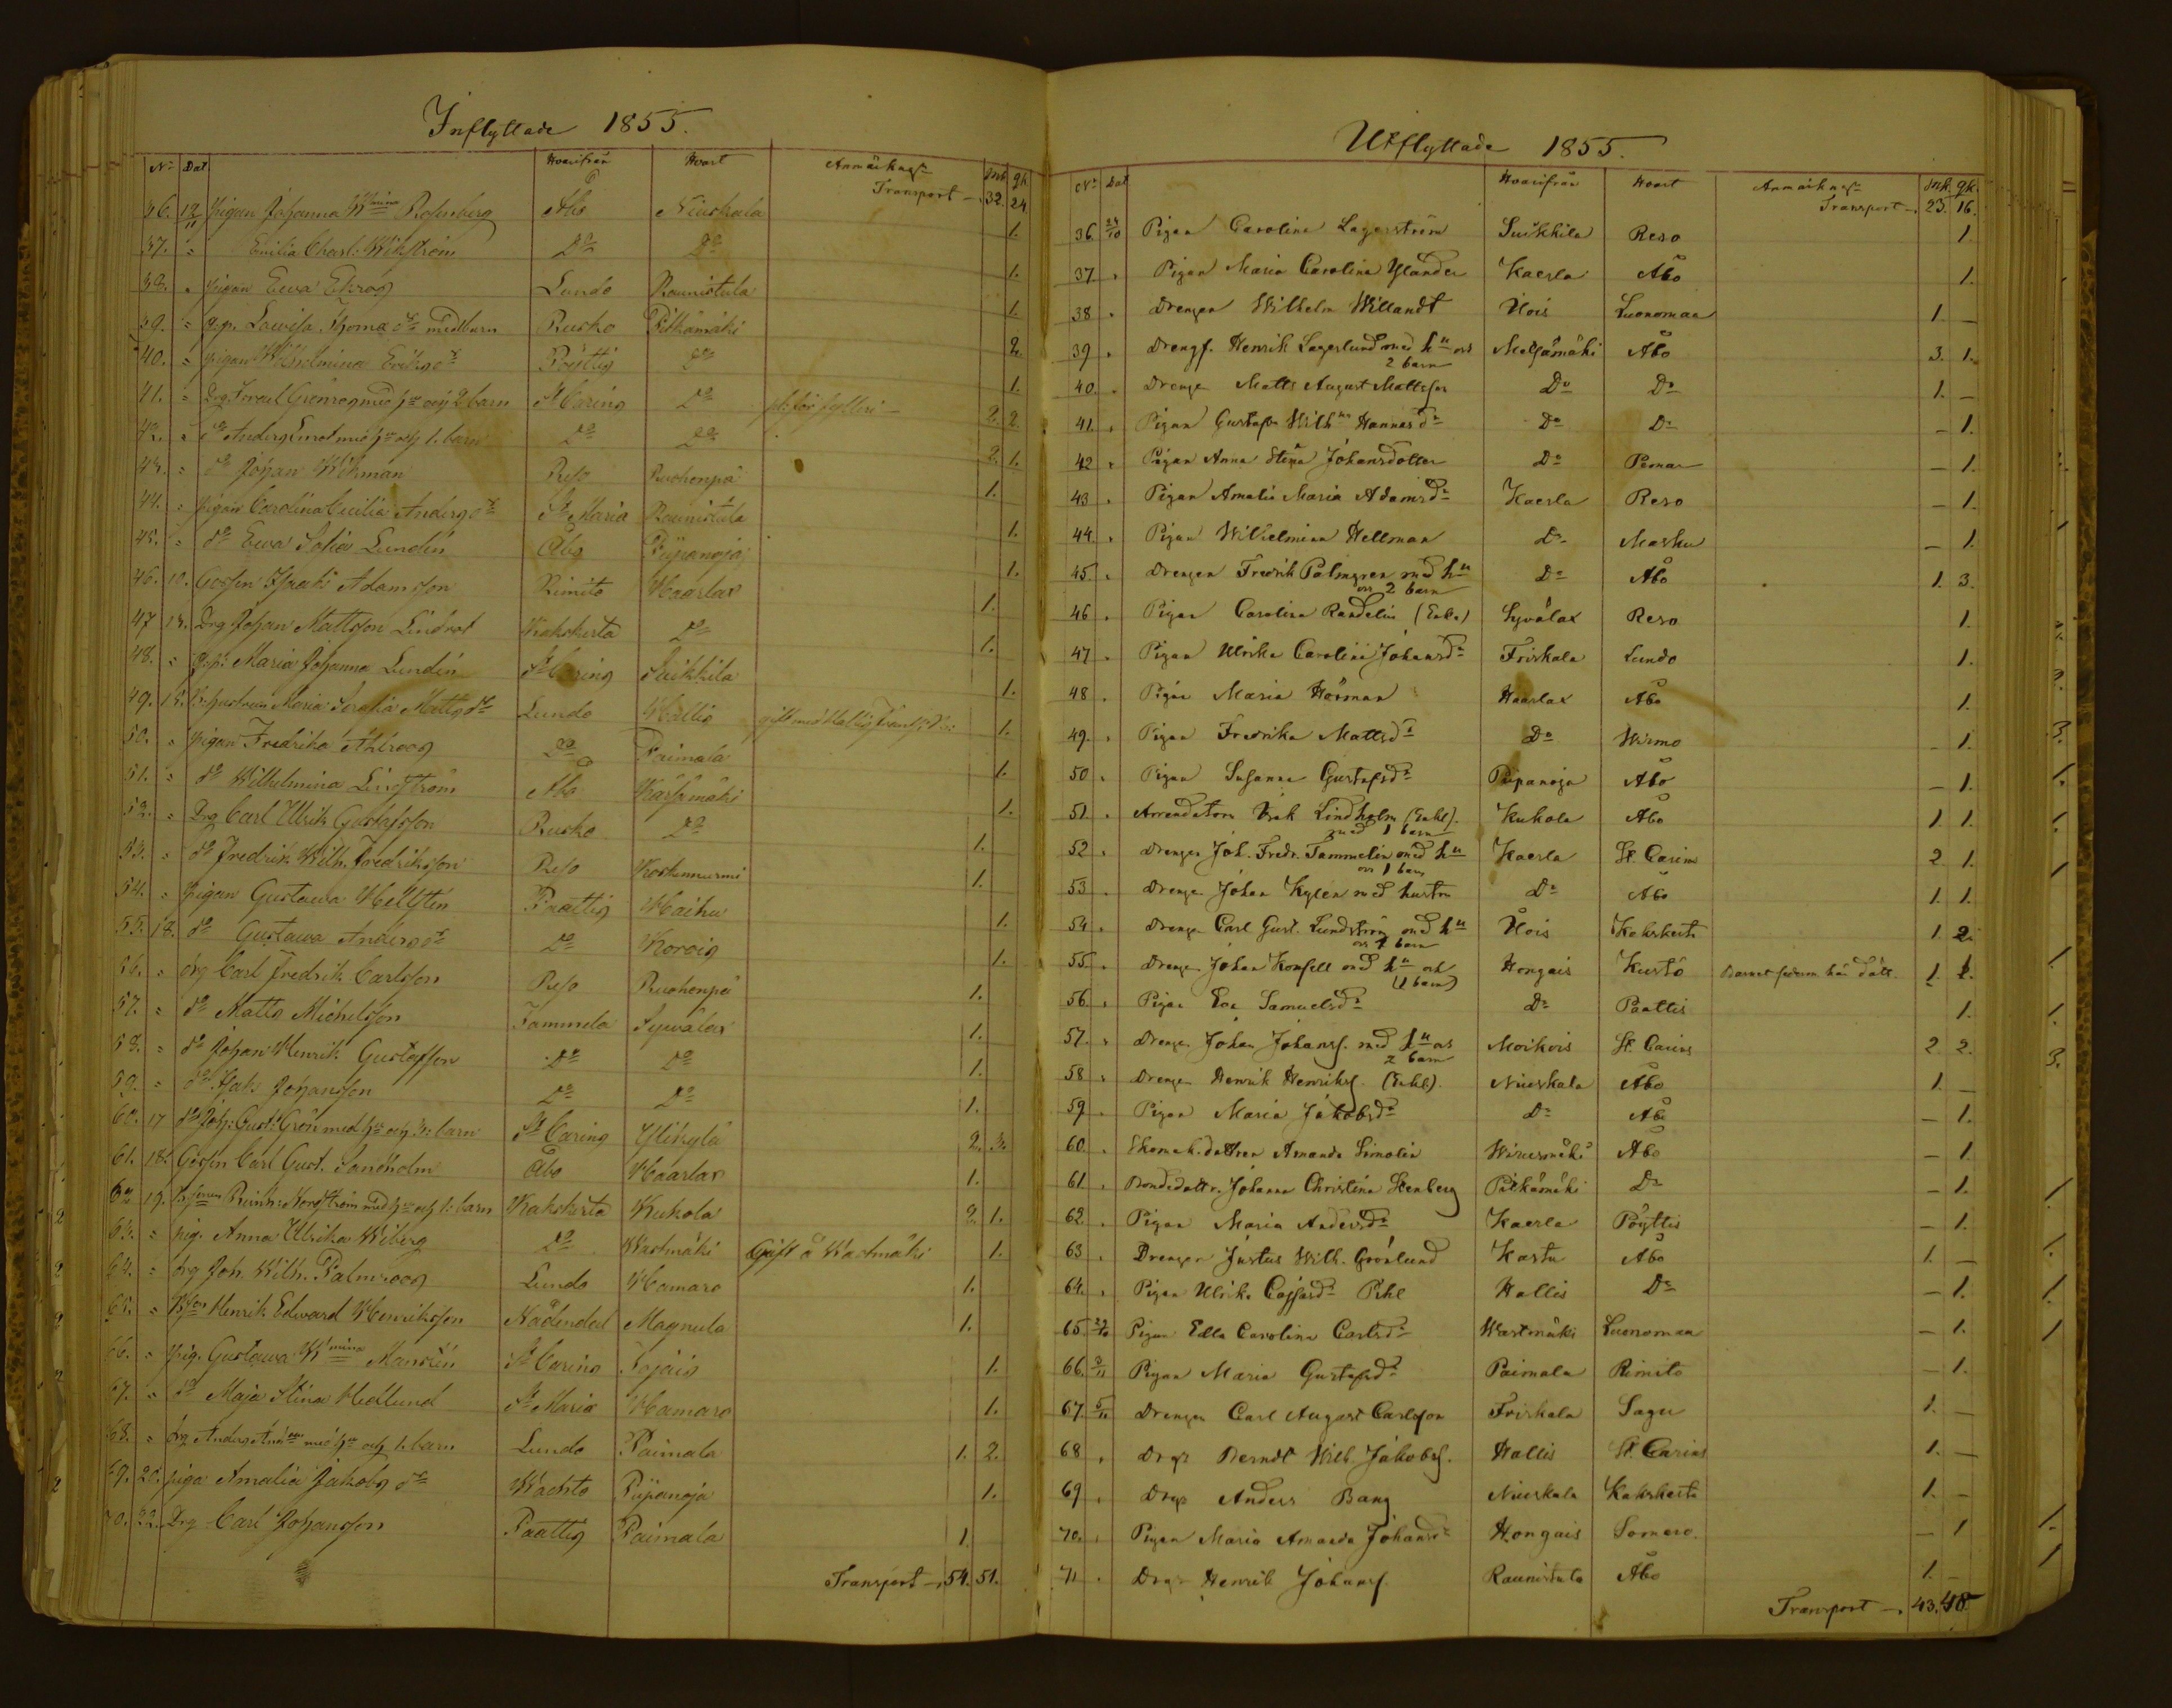 Inflyttade 1855.
No Dat. Hvarifrån Hvart Anmärkngr Mk. qk.
Transport — 32. 24.
36. 12/11 pigan Johanna Wmina Rosenberg Åbo Niuskala 1.
37. " Emilia Charl: Wikström Do Do 1.
38. " pigan Eva Ekroos Lundo Raunistula 1.
39. " Lovisa Thomasdr med barn Rusko Pitkämäki 2.
40. " pigan Wilhelmina Eriksdr Pöyttis Do 1.
41. " Drg. Israel Grönroos med hu och 2 barn St Carins Do pl: för fylleri — 2. 2.
42. " do Anders Enrot med hu och 1. barn Do Do 2. 1.
43. " do Johan Wikman Reso Ruohonpä 1.
44. " pigan Carolina Cecilia Andersdr St Maria Raunistula 1.
45. " do Eva Sofia Lundén Åbo Piipanoja 1.
46. 10. Gossen Isaak Adamsson Rimito Haarlax 1.
47 13. Drg Johan Mattsson Lindrot Kakskerta Do 1.
48. " Maria Johanna Lundén St Carins Suikkila 1.
49. 15. hustrun Maria Serafia Mattsdr Lundo Hallis gift med Hallis 1.
50. " pigan Fredrika Ahlroos Do Paimala 1.
51. " do Wilhelmina Lindström Åbo Kärsämäki 1.
52. " Drg Carl Ulrik Gustafsson Rusko Do 1.
53. " do Fredrik Wilh. Fredriksson Reso Koskennurmi 1.
54. " pigan Gustava Hellstén Paattis Haihu 1.
55. 18. do Gustava Andersdr Do Korois 1.
56. " drg Carl Fredrik Carlsson Reso Ruohonpä 1.
57. " do Matts Michelsson Tammela Syvälax 1.
58. " do Johan Henrik Gustafsson Do Do 1.
59. " do Isak Johansson Do Do 1.
60. 17 do Joh: Gust: Grön med hu och 3: barn St Carins Ylikylä 2. 3.
61. 18. Gossen Carl Gust. Sandholm Åbo Haarlax 1.
62 19. Reinh: Nordström med hu och 1: barn Kakskerta Kukola 2. 1.
63. " pig. Anna Ulrika Wiberg Do Wästmäki Gift å Wästmäki 1.
64. " drg Joh. Wilh. Palmroos Lundo Hamaro 1.
65. " Henrik Edward Henriksson Nådendal Magnula 1.
66. " pig. Gustava Wmina Mansten St Carins Jojais 1.
67. " do Maja Stina Hedlund St Maria Hamaro 1.
68. " drg Anders med hu och 1. barn Lundo Paimala 1. 2.
69. 20. piga Amalia Jakobsdr Wachto Piipanoja 1.
70. 22. Drg Carl Johansson Paattis Paimala 1.
Transport — 54. 51.
Utflyttade 1855.
No Dat Hvarifrån Hvart Anmärkngr Mk. qk.
Transport — 23. 16.
36. 24/10 Pigan Carolina Lagerström Suikkila Reso 1.
37 " Pigan Maria Carolina Ylander Kaerla Åbo 1.
38 " Drengen Wilhelm Willandt Ilois Luonomaa 1. —
39 " Drengf. Henrik Lagerlund med hu och 2 barn Mälsämäki Åbo 3. 1.
40. " Drengen Matts August Mattsson Do Do 1. —
41. " Pigan Gustafva Wilhna Hannusdr Do Do — 1.
42 " Pigan Anna Stina Johansdotter Do Pemar — 1.
43 " Pigan Amalia Maria Adamsdr Kaerla Reso — 1.
44. " Pigan Wilhelmina Hellman Do Masku — 1.
45. " Drengen Fredrik Palmgren med hu och 2 barn Do Åbo 1. 3.
46 " Pigan Carolina Randelin (Enka) Syvälax Reso 1.
47 " Pigan Ulrika Carolina Johansdr Friskala Lundo 1.
48 " Pigan Maria Hörman Haarlax Åbo 1.
49. " Pigan Fredrika Mattsdr Do Wirmo — 1.
50 " Pigan Susanna Gustafsdr Piipanoja Åbo — 1.
51. " Arrendatorn Isak Lindholm (Enkl). med 1 barn Kukola Åbo 1. 1.
52 " Drengen Joh. Fredr. Tammelin med hu och 1 barn Kaerla St. Carins 2. 1.
53 " Drengen Johan Kylén med hustru Do Åbo 1. 1.
54. " Drengen Carl Gust. Lundström med hu och 1 barn Ilois Kakskerta 1. 2.
55. " Drengen Johan Konsell med hu och (1 barn) Hongais Kustö Barnet 1. 1.
56 " Pigan Eva Samuelsdr Do Paattis 1.
57. " Drengen Johan Johanss. med hu och 2 barn Moikois St. Carins 2. 2.
58 " Drengen Henrik Henrikss. (Enkl). Niuskala Åbo 1. —
59 " Pigan Maria Jakobsdr Do Åbo — 1.
60. " Skomak.dottren Amanda Limolin Wirusmäki Åbo — 1.
61. " Bondedottr. Johanna Christina Stenberg Pitkämäki Do — 1.
62. " Pigan Maria Andersdr Kaerla Pöyttis — 1.
63 " Drengen Justus Wilh. Grönlund Kastu Åbo 1. —
64. " Pigan Ulrika Pihl Hallis Do — 1.
65 27/10 Pigan Edla Carolina Carlsdr Wästmäki Luonomaa — 1.
66. 3/11 Pigan Maria Gustafsdr Paimala Rimito — 1.
67. 5/11 Drengen Carl August Carlsson Friskala Sagu 1. —
68 " Drgn Berndt Wilh. Jakobss. Hallis St. Carins 1. —
69 " Drgn Anders Bang Niuskala Kakskerta 1. —
70. " Pigan Maria Amanda Johansdr Hongais Somero — 1
71 " Drgn Henrik Johanss. Raunistula Åbo 1. —
Transport — 43. 48.